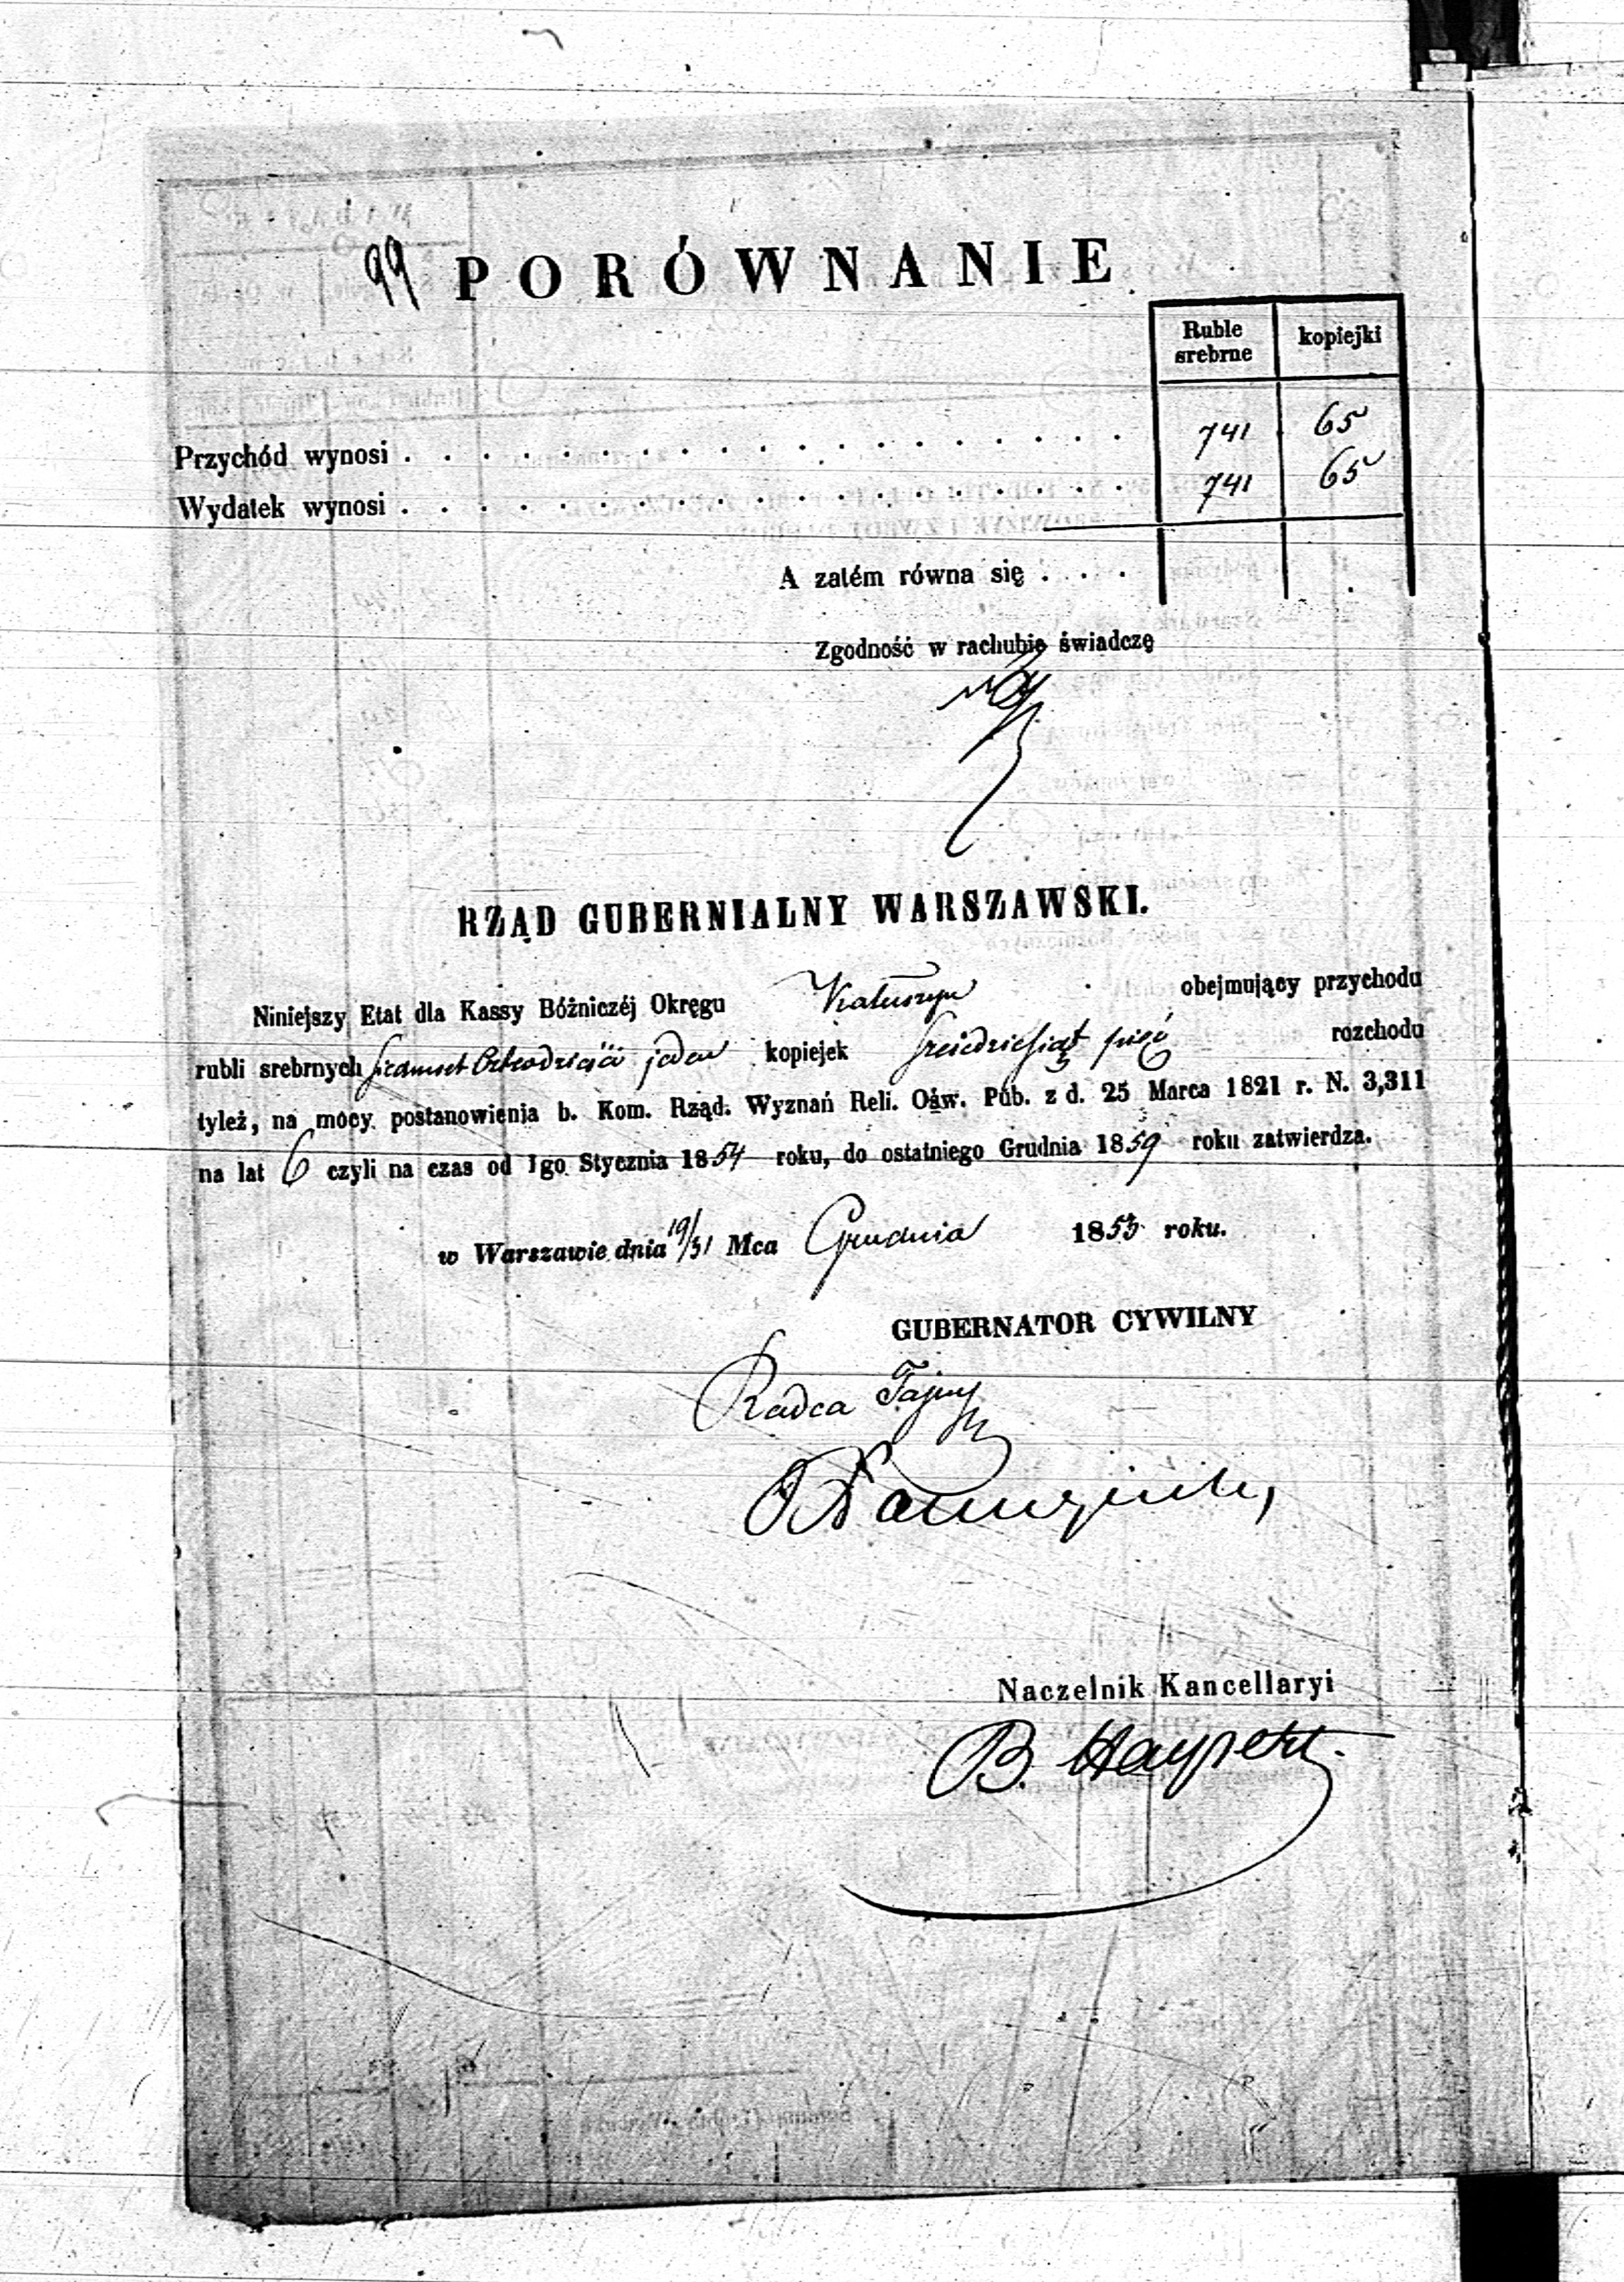 99 PORÓWNANIE
Ruble srebrne kopiejki
Przychód wynosi . . . . . . . . . . . . . . . . . . . 741 65
Wydatek wynosi . . . . . . . . . . . . . . . . . . . 741 65
A zatém równa się . . . .
Zgodność w rachubie świadczę
RZĄD GUBERNIALNY WARSZAWSKI.
Niniejszy Etat dla Kassy Bóźniczéj Okręgu Kałuszyn obejmujący przychodu
rubli srebrnych siedmset czterdzieści jeden kopiejek sześćdziesiąt pięć rozchodu
tyleż, na mocy postanowienia b. Kom. Rząd. Wyznań Reli. Ośw. Pub. z d. 25 Marca 1821 r. N. 3,311
na lat 6 czyli na czas od 1go Stycznia 1854 roku, do ostatniego Grudnia 1859 roku zatwierdza.
w Warszawie dnia 19/31 Mca Grudnia 1853 roku.
GUBERNATOR CYWILNY
Radca Tajny
Naczelnik Kancellaryi
B.